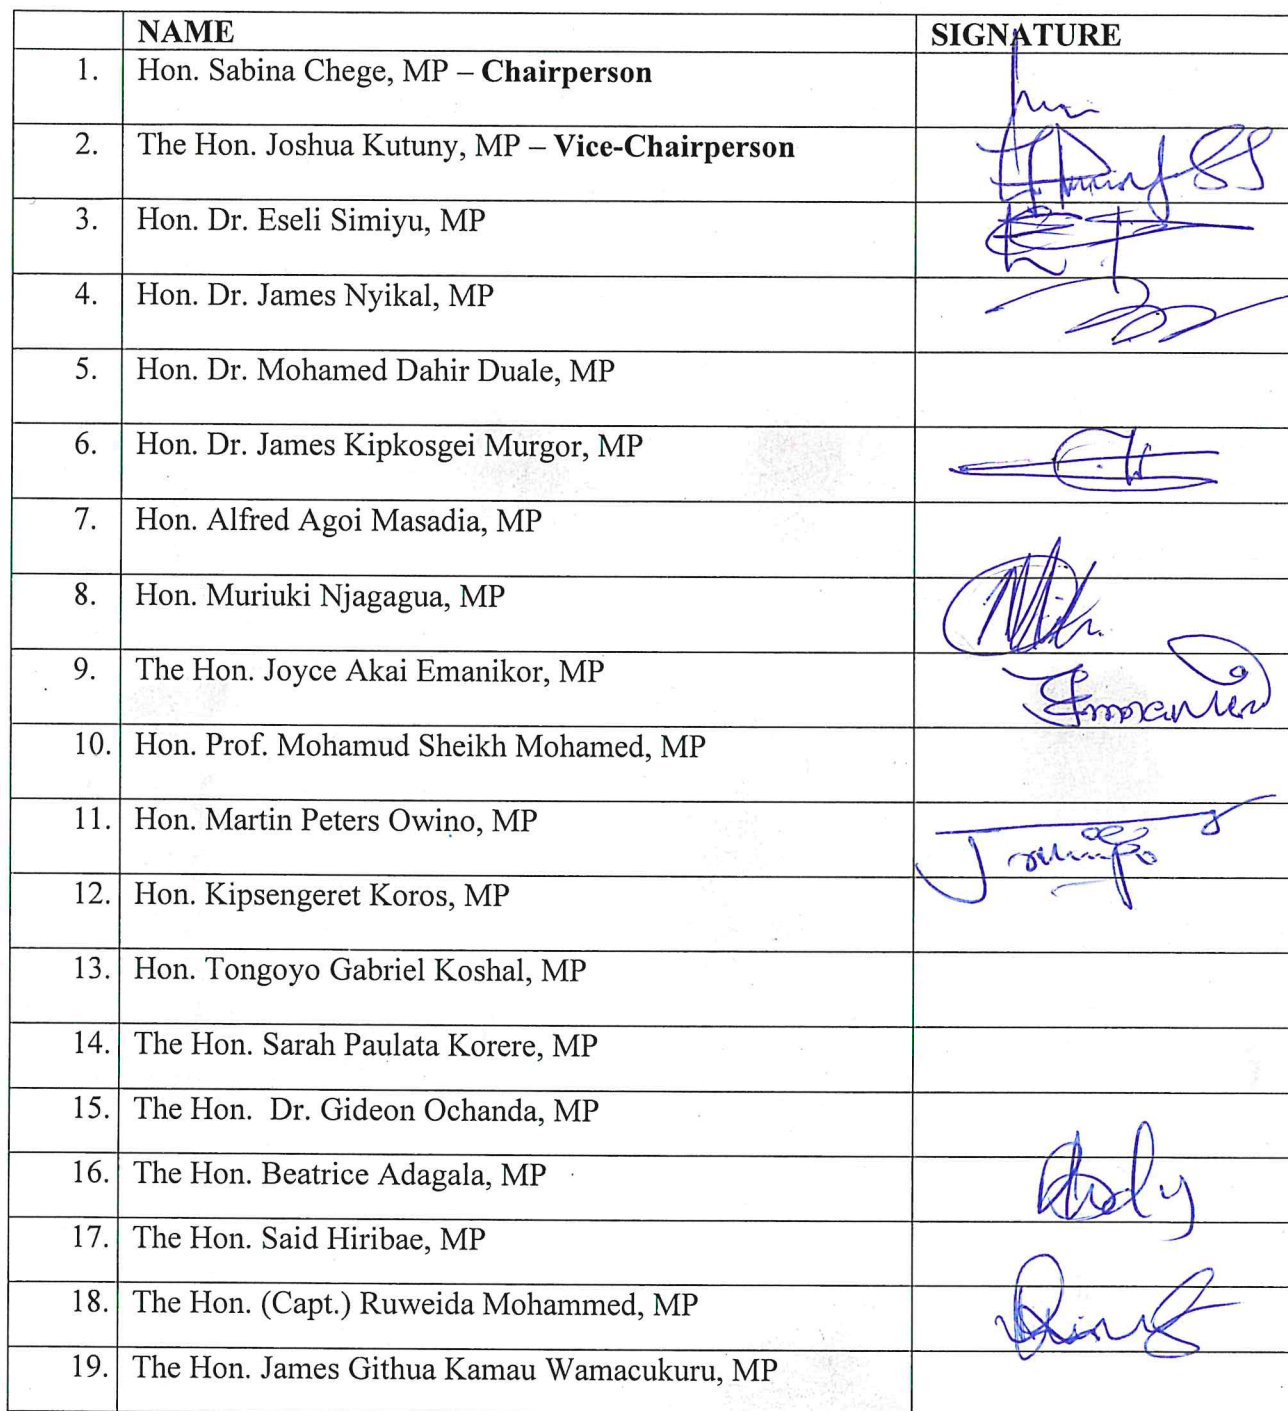 NAME SIGNATURE
1. Hon. Sabina Chege, MP – Chairperson
2. The Hon. Joshua Kutuny, MP – Vice-Chairperson
3. Hon. Dr. Eseli Simiyu, MP
4. Hon. Dr. James Nyikal, MP
5. Hon. Dr. Mohamed Dahir Duale, MP
6. Hon. Dr. James Kipkosgei Murgor, MP
7. Hon. Alfred Agoi Masadia, MP
8. Hon. Muriuki Njagagua, MP
9. The Hon. Joyce Akai Emanikor, MP
10. Hon. Prof. Mohamud Sheikh Mohamed, MP
11. Hon. Martin Peters Owino, MP
12. Hon. Kipsengeret Koros, MP
13. Hon. Tongoyo Gabriel Koshal, MP
14. The Hon. Sarah Paulata Korere, MP
15. The Hon. Dr. Gideon Ochanda, MP
16. The Hon. Beatrice Adagala, MP
17. The Hon. Said Hiribae, MP
18. The Hon. (Capt.) Ruweida Mohammed, MP
19. The Hon. James Githua Kamau Wamacukuru, MP